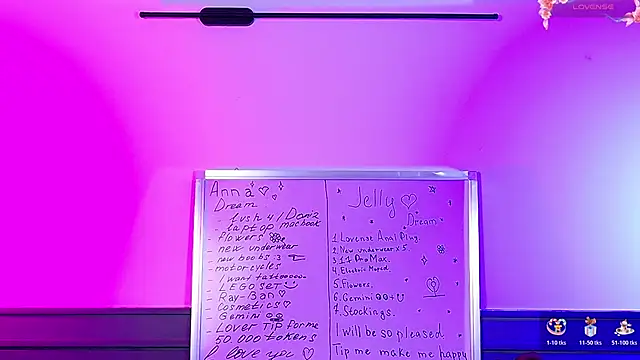 LOVENSE
Anna ♡
Dream
- Lush 4 / Domi 2
- Laptop macbook
- flowers
- new underwear
- new boobs :3
- motorcycles
- I want tattoooooo
- LEGO SET
- Ray-Ban ♡
- Cosmetics ♡
- Gemini
- Lover Tip for me
50.000 tokens
I love you ♡
Jelly ♡
Dream
1. Lovense Anal Plug.
2. New underwear x 5.
3. 17 Pro Max.
4. Electric Moped.
5. Flowers.
6. Gemini
7. Stockings.
I will be so pleased
Tip me make me happy
1-10 tks
11-50 tks
51-100 tks